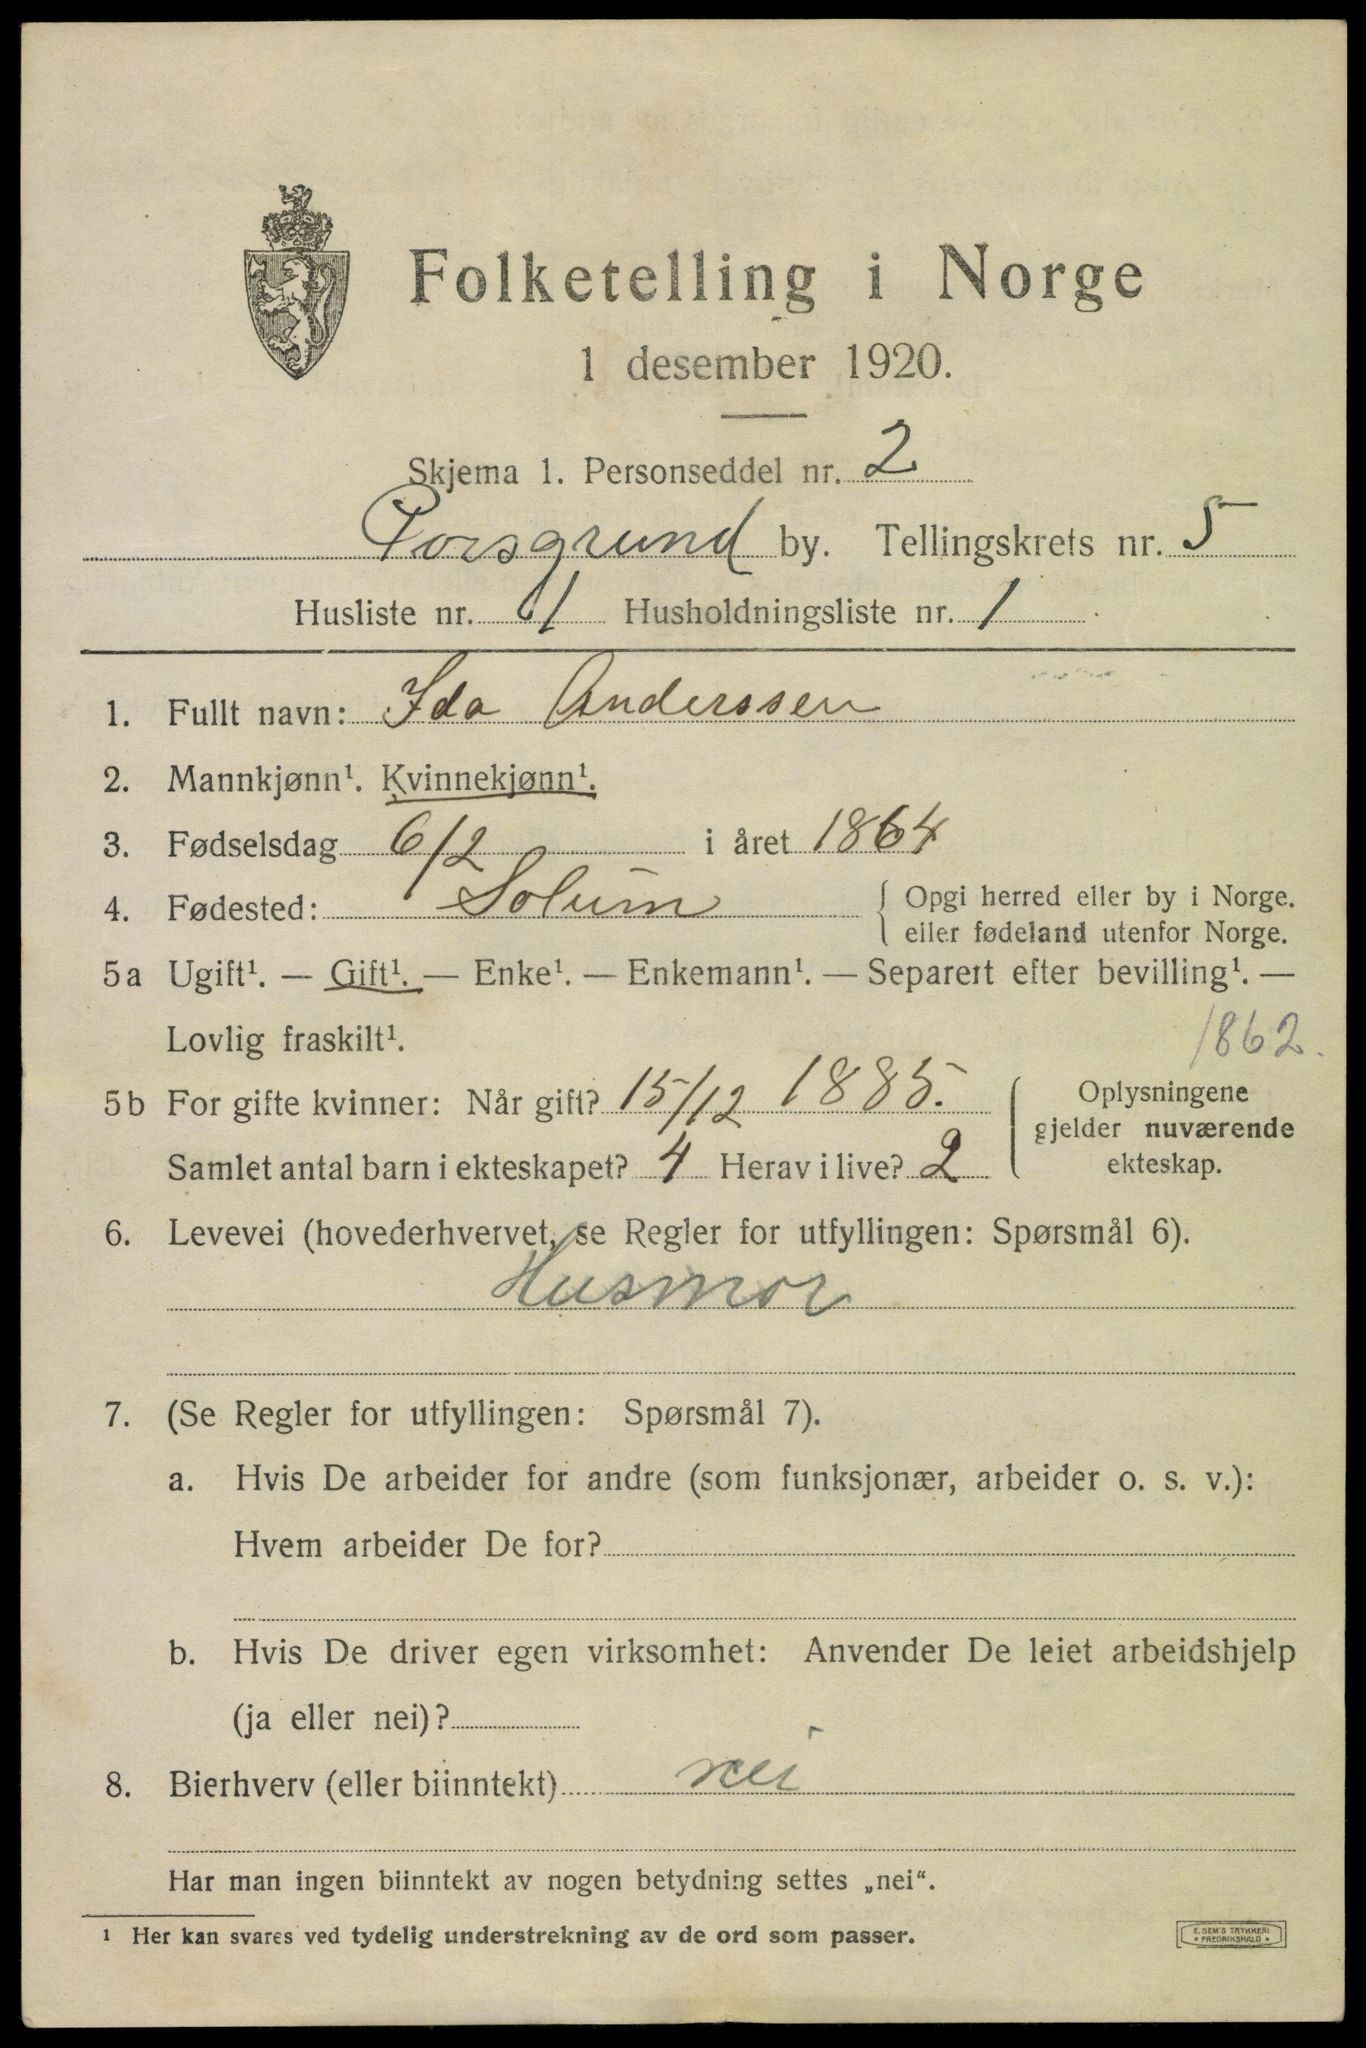 Folketelling i Norge
1 desember 1920.
Skjema 1. Personseddel nr. 2
Porsgrund by. Tellingskrets nr. 5
Husliste nr. 1 Husholdningsliste nr. 1
1. Fullt navn: Ida Anderssen
2. Mannkjønn¹. Kvinnekjønn¹.
3. Fødselsdag 6/2 i året 1864
4. Fødested: Solum { Opgi herred eller by i Norge.
eller fødeland utenfor Norge.
5a Ugift¹. — Gift¹. — Enke¹. — Enkemann¹. — Separert efter bevilling¹. —
Lovlig fraskilt¹.
1862.
5b For gifte kvinner: Når gift? 15/12 1885.
Samlet antal barn i ekteskapet? 4 Herav i live? 2
Oplysningene
gjelder nuværende
ekteskap.
6. Levevei (hovederhvervet, se Regler for utfyllingen: Spørsmål 6).
Husmor
7. (Se Regler for utfyllingen: Spørsmål 7).
a. Hvis De arbeider for andre (som funksjonær, arbeider o. s. v.):
Hvem arbeider De for?
b. Hvis De driver egen virksomhet: Anvender De leiet arbeidshjelp
(ja eller nei)?
8. Bierhverv (eller biinntekt) nei
Har man ingen biinntekt av nogen betydning settes „nei“.
¹ Her kan svares ved tydelig understrekning av de ord som passer.
E. SEM'S TRYKKERI
* FREDRIKSHALD *